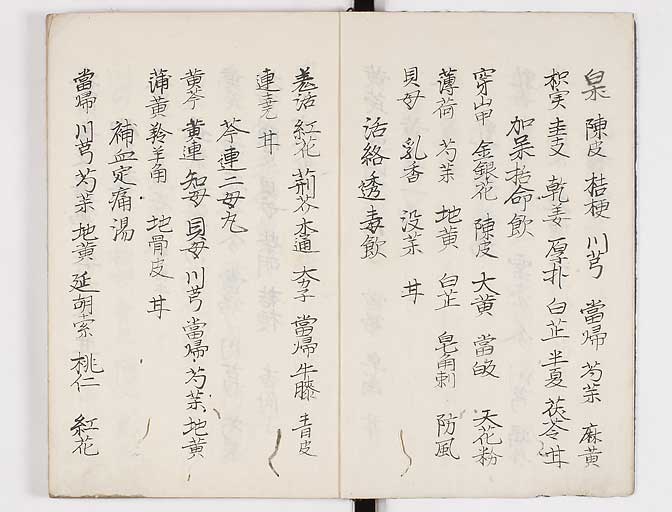 陳皮 桔梗 川芎 當帰 芍薬 麻黄
枳実 圭支 乾姜 厚朴 白芷 半夏 茯苓 甘
加味括命飲
穿山甲 金銀花 陳皮 大黄 當皈 天花粉
薄荷 芍薬 地黄 白芷 皂角刺 防風
貝母 乳香 没薬 甘
活絡透毒飲
羌活 紅花 荊芥 木通 當帰 牛膝 青皮
連堯 甘
芩連二母丸
黄芩 黄連 知母 貝母 川芎 當帰 芍薬 地黄
蒲黄 羚羊角 地骨皮 甘
補血定痛湯
當帰 川芎 芍薬 地黄 延胡索 桃仁 紅花